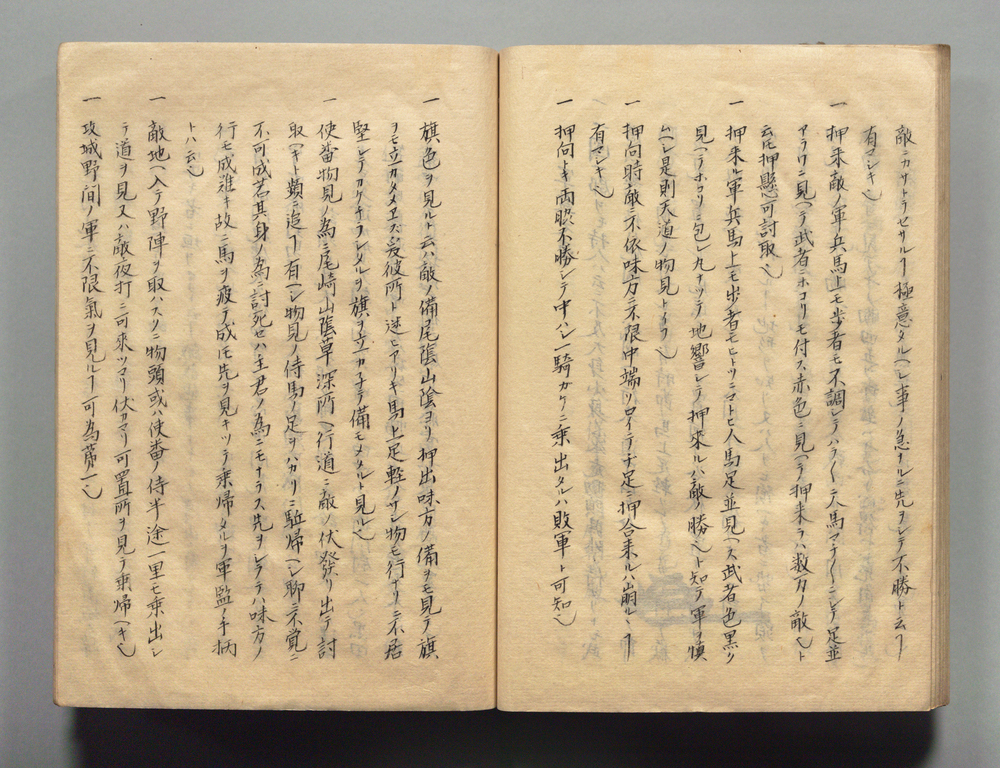 敵ニカリトラセサルヿ極意タルヘレ事ノ急ナルニ先ヲシテ不勝ト云ヿ
有マシキ也
一 押来ル敵ノ軍兵馬上モ歩者モ不調シテハラ〱ニ人馬マチ〱ニシテ足並
アラワニ見ヘテ武者ニホコリモ付ス赤色ニ見ヘテ押来ラハ数万ノ敵也ト
云ㇳモ押懸可討取也
一 押来ル軍兵馬上モ歩者モヒトツニマトヒ人馬足並見ヘス武者色黒ク
見ヘテホコリニ包レ九ナツテ地響シテ押來ルハ敵ノ勝也ト知テ軍ヲ慎
ムヘシ是則天道ノ物見トイフ也
一 押向時敵ニ不依味方ニ不限中端ソロイテ千足ニ押合来ルハ崩ルヽヿ
有マシキ也
一 押向ㇳキ両脇不勝シテ中ハシ一騎カケニ乗出タルハ敗軍ト可知也
一 旗色ヲ見ルト云ハ敵ノ備尾陰山陰ヨリ押出味方ノ備ヲモ見テ旗
ヲモ立カタメス爰彼所ト迷ヒアリキ馬上足軽ノサシ物モ行ナリニ不居
堅シテカケチラシタルヲ旗ヲ立カ子テ備モメタルト見ル也
一 使番物見ノ為ニ尾崎山陰草深所ヘ行道ニ敵ノ伏發リ出テ討
取ヘキト頻ニ追ヿ有ヘシ物見ノ侍馬ノ足ヲハカリニ駈帰ヘシ聊ニ不覚ニ
不可成若其身ノ為ニ討死セハ主君ノ為ニモナラス先ヲシラテハ味方ノ
行モ成難キ故ニ馬ヲ疲テ成ㇳモ先ヲ見キツテ乗帰タルヲ軍監ノ手柄
トハ云也
一 敵地ヘ入テ野陣ヲ取ハスノニ物頭或ハ使番ノ侍半途一里モ乗出シ
テ道ヲ見又ハ敵夜打ニ可來ツマリ伏カマリ可置所ヲ見テ乗帰ヘキ也
一 攻城野間ノ軍ニ不限氣ヲ見ルヿ可為第一也